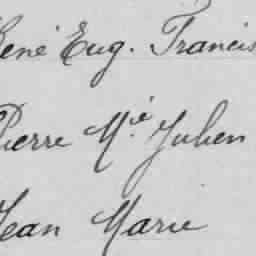 René Eug. Francis
Pierre Mie Julien
Jean Marie